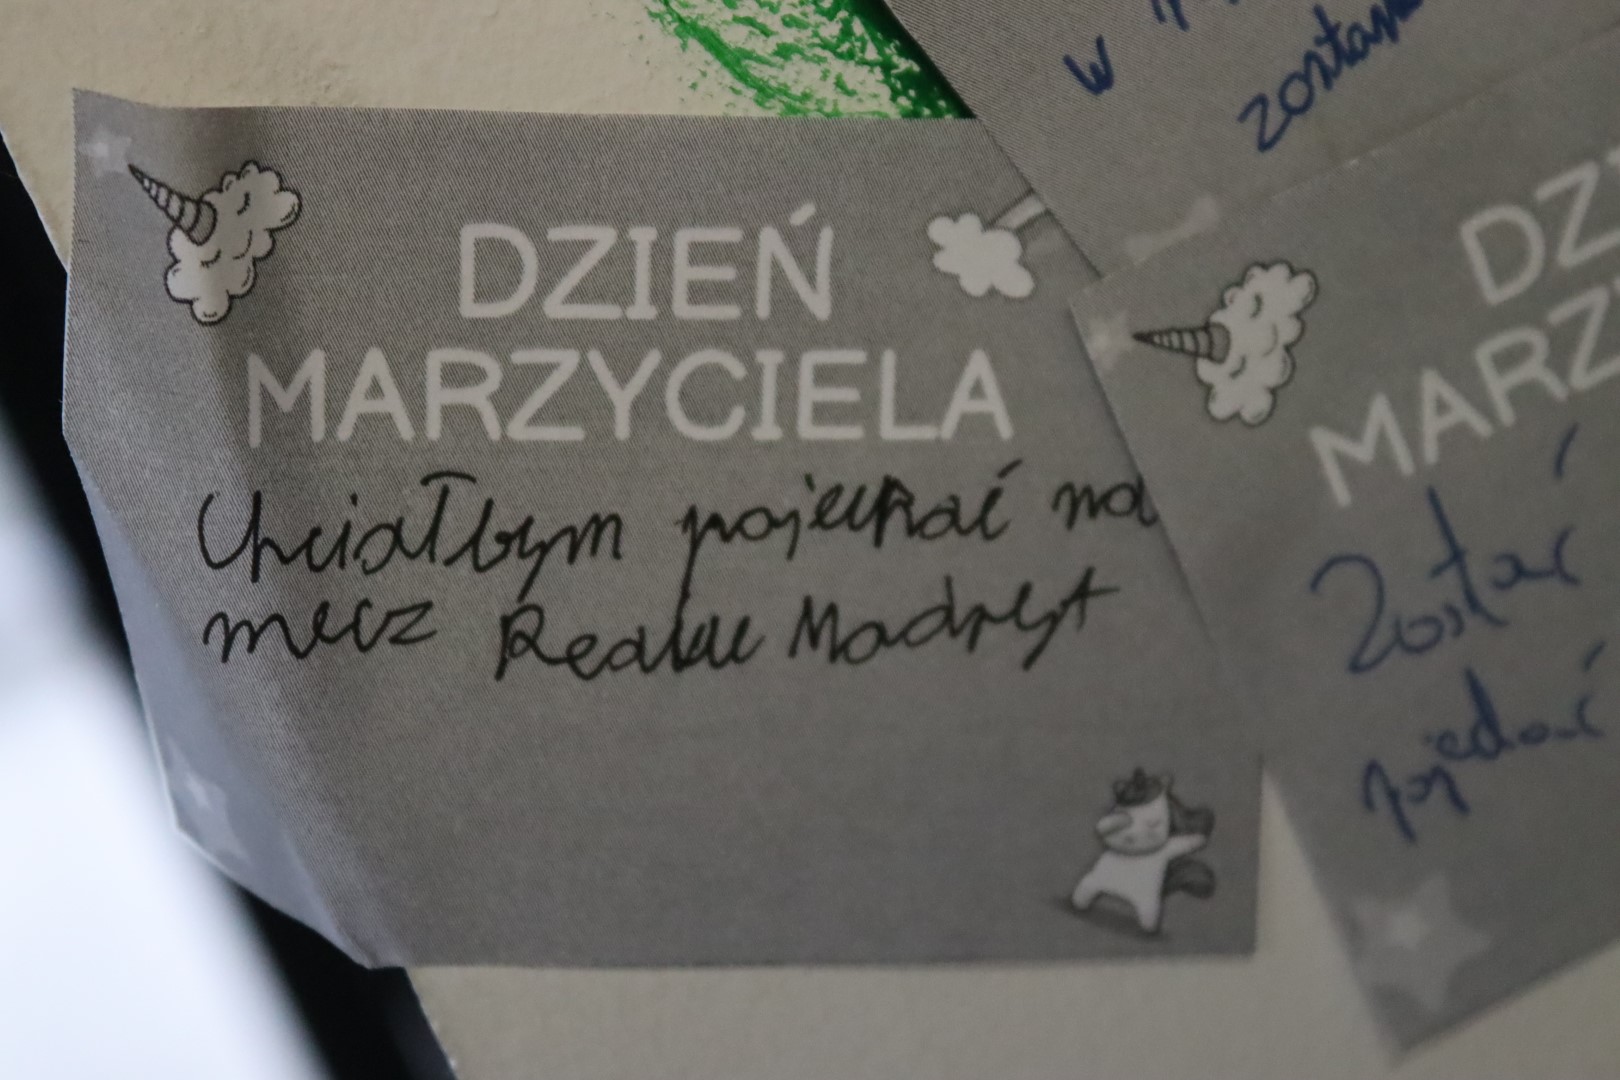 DZIEŃ
MARZYCIELA
Chciałbym pojechać na
mecz Realu Madryt
w
DZ
MARZ
Zostać
pojechać